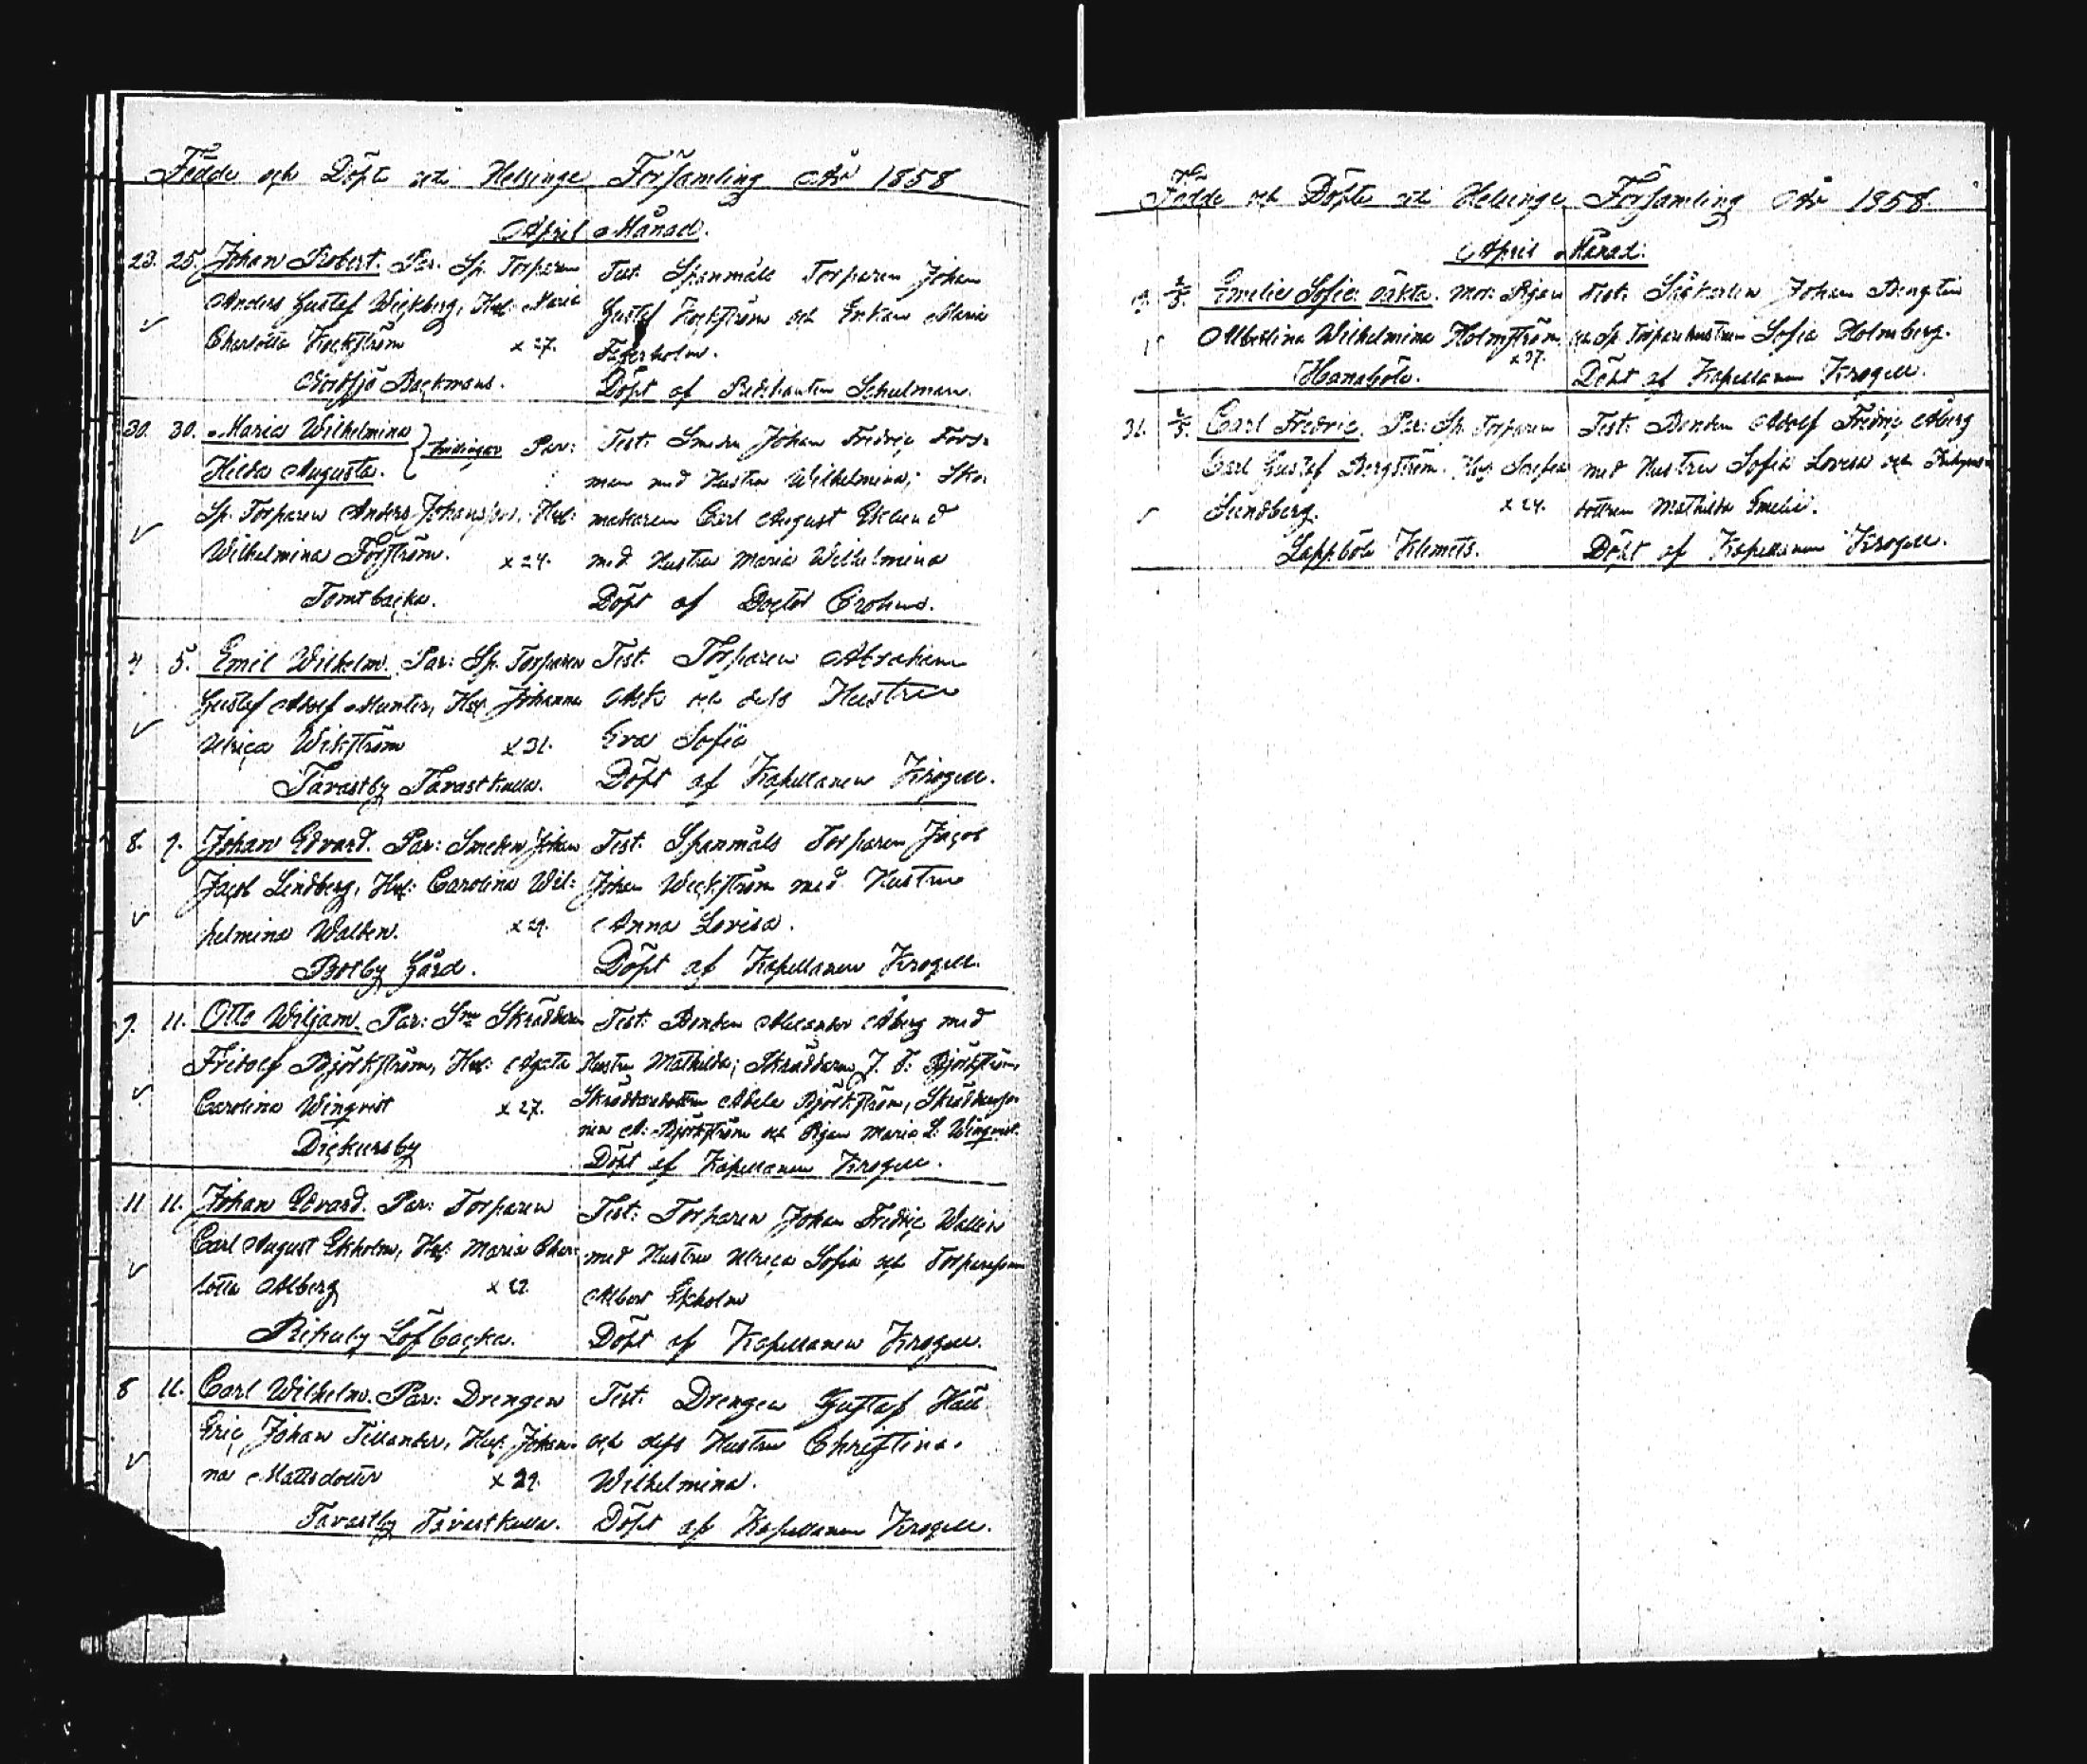 Födde och Döpte uti Helsinge Församling År 1858
April Månad.
23. 25. Johan Robert. Par: Sp. Torparen
Anders Gustaf Wickberg, Hust: Maria
Charlotta x 27.
Backmans.
Test: Spanmåls Torparen Johan
Gustaf och Enkan Maria
Döpt af Predikanten Schulman.
30. 30. Maria Wilhelmina
Hilda Augusta. Tvillingar Par:
Sp. Torparen Anders Johansson, Hust:
Wilhelmina Forsström. x 24.
Tomtbacka.
Test: Smeden Johan Fredric Fors-
man med Hustru Wilhelmina; Sko-
makaren Carl August Eklund
med Hustru Maria Wilhelmina
Döpt af Doctor Crohns.
4 5. Emil Wilhelm. Par: Sp. Torparen
Gustaf Adolf Munter, Hust: Johanna
Ulrica Wikström x 31.
Tavastby Tavastkulla.
Test: Torparen Abraham
Ask och dess Hustru
Eva Sofia
Döpt af Kapellanen Krogell.
8. 9. Johan Edvard. Par: Smeden Johan
Jacob Lindberg, Hust: Carolina Wil-
helmina Walden. x 29.
Botby Gård.
Test: Spanmåls Torparen Jacob
Johan Weckström med Hustru
Anna Lovisa.
Döpt af Kapellanen Krogell.
9. 11. Otto Wiljam. Par: Skräddaren
Fridolf Björkström, Hust: Agata
Carolina Winqvist x 27.
Dickursby
Test: Bonden Alexander Åberg med
Hustru Mathilda; Skräddaren J. F. Björkström,
Skräddaredottren Adela Björkström, Skräddareso-
nen A. Björkström och Pigan Maria L. Winqvist.
Döpt af Kapellanen Krogell.
11 11. Johan Edvard. Par: Torparen
Carl August Ekholm, Hust: Maria Char-
lotta Alberg x 22.
Rekuby Löfbacka.
Test: Torparen Johan Fredric Wallin
med Hustru Ulrica Sofia och Torparesonen
Albert Ekholm
Döpt af Kapellanen Krogell.
8 11. Carl Wilhelm. Par: Drengen
Eric Johan Tillander, Hust: Johan-
na Mattsdotter x 29.
Tavastby Tavastkulla.
Test: Drengen Gustaf Häll
och dess Hustru Christina
Wilhelmina.
Döpt af Kapellanen Krogell.
Födde och Döpte uti Helsinge Församling År 1858.
April Månad.
19. 2/5. Emelie Sofia oäkta. Mod: Pigan
Albertina Wilhelmina Holmström x 37.
Hanaböle.
Test: Johan Bengtin
och Sp. Torparehustrun Sofia Holmberg.
Döpt af Kapellanen Krogell.
31. 2/5. Carl Fredric. Par: Sp. Torparen
Carl Gustaf Bergström, Hust: Josefina
Sundberg. x 24.
Lappböle Klemets.
Test: Bonden Adolf Fredric Åberg
med Hustru Sofia Lovisa och
dottren Mathilda Emelie.
Döpt af Kapellanen Krogell.